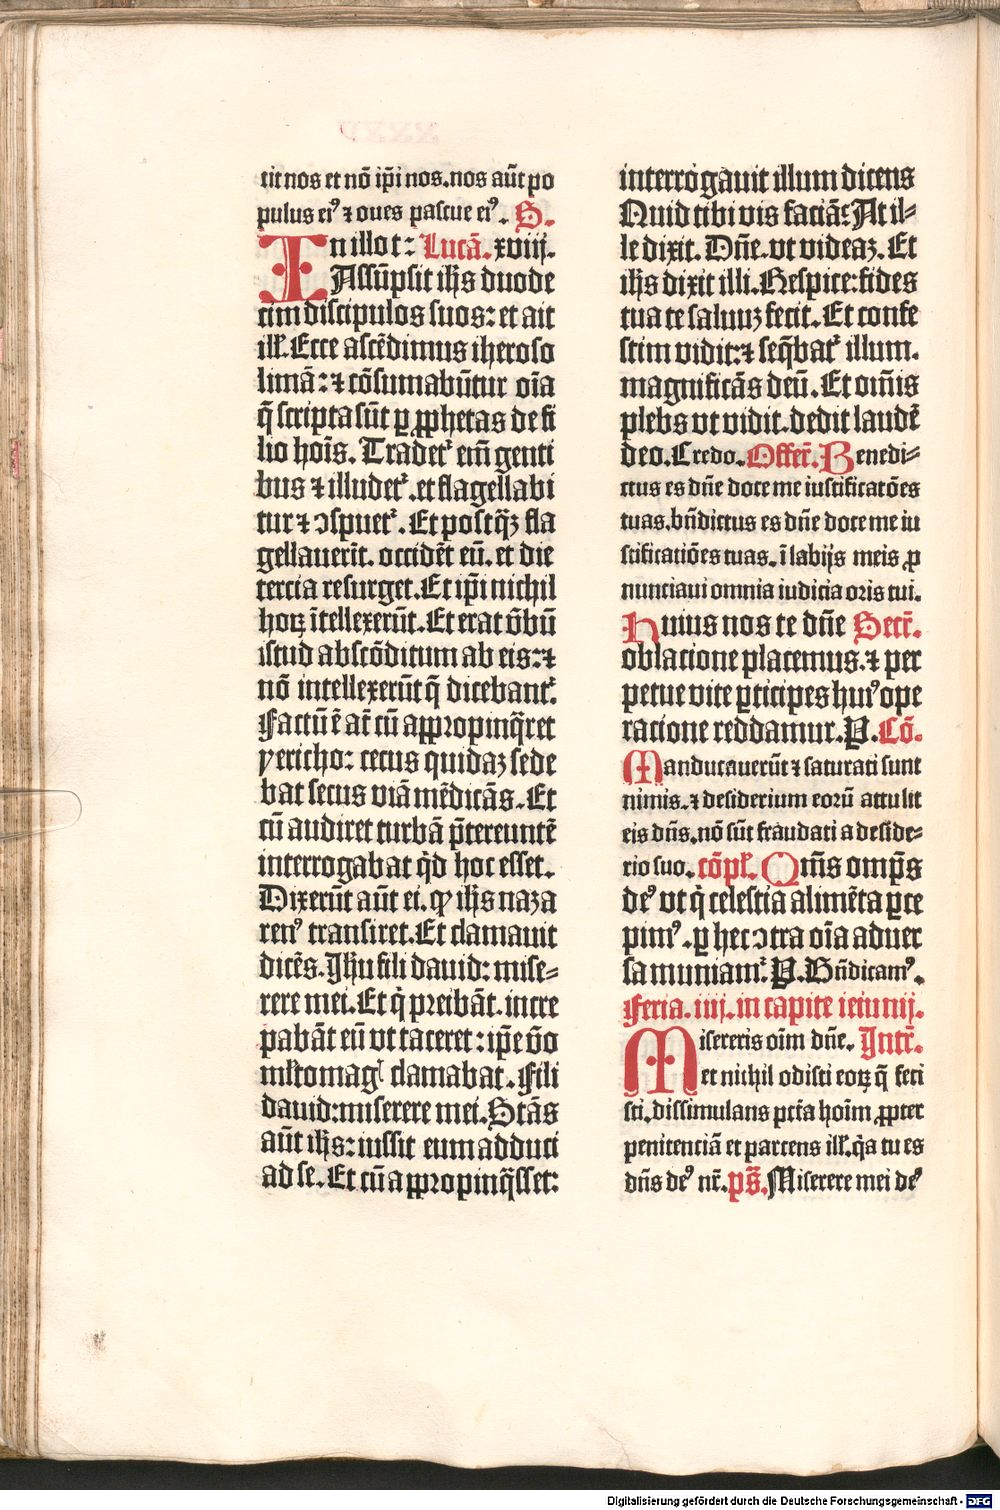 cit nos et nō ip̄i nos. nos aūt po
pulus ei⁹ ⁊ oues pascue ei⁹. S.
In illo t: Lucā. xviij.
Assūpsit ih̄s duode
cim discipulos suos: et ait
ill'. Ecce ascēdimus iheroso
limā: ⁊ cōsumabūtur oīa
q̄ scripta sūt ꝑ ꝓphetas de fi
lio hoīs. Tradet᷑ eīn genti
bus ⁊ illudet᷑. et flagellabi
tur ⁊ ꝯspuet᷑. Et postq̄ꝫ fla
gellauerīt. occidēt eū. et die
tercia resurget. Et ip̄i nichil
hoꝝ ītellexerūt. Et erat v̄bū
istud abscōditum ab eis: ⁊
nō intellexerūt q̄ dicebant᷑.
Factū ē āt cū appropinq̄ret
yericho: cecus quidaꝫ sede
bat secus viā mēdicās. Et
cū audiret turbā p̄tereuntē
interrogabat q̇d hoc esset.
Dixerūt aūt ei. ꝙ ih̄s naza
ren⁹ transiret. Et clamauit
dicēs. Jh̄u fili dauid: mise-
rere mei. Et q̇ preibāt. incre
pabāt eū vt taceret: ip̄e v̄o
ml̄to magꝭ clamabat. Fili
dauid: miserere mei. Stās
aūt ih̄s: iussit eum adduci
ad se. Et cū appropinq̄sset:
interrogauit illum dicens
Quid tibi vis faciā? At il-
le dixit. Dn̄e. vt videaꝫ. Et
ih̄s dixit illi. Respice: fides
tua te saluuꝫ fecit. Et confe
stim vidit: ⁊ seq̄bat᷑ illum.
magnificās deū. Et om̄is
plebs vt vidit. dedit laudē
deo. Credo. Offer̄. Benedi-
ctus es dn̄e doce me iustificatōes
tuas. bn̄dictus es dn̄e doce me iu
stificatiōes tuas. ī labijs meis ꝓ
nūnciaui omnia iudicia oris tui.
Huius nos te dn̄e Secr̄.
oblatione placemus. ⁊ per
petue vite ꝑticipes hui⁹ ope
ratione reddamur. P. Cō.
Manducauerūt ⁊ saturati sunt
nimis. ⁊ desiderium eorū attulit
eis dn̄s. nō sūt fraudati a deside-
rio suo. cōpl'. Qm̄s omp̄s
de⁹ vt q̇ celestia alimēta ꝑce
pim⁹. ꝑ hec ꝯtra oīa aduer
sa muniam᷑. P. Bn̄dicam⁹.
Feria. iiij. in capite ieiunij.
Misereris oīm dn̄e. Intr̄.
et nichil odisti eoꝝ q̄ feci
sti. dissimulans pctā hoīm ꝓpter
penitenciā et parcens ill'. q̇a tu es
dn̄s de⁹ nr̄. ps̄. Miserere mei de⁹
Digitalisierung gefördert durch die Deutsche Forschungsgemeinschaft - DFG